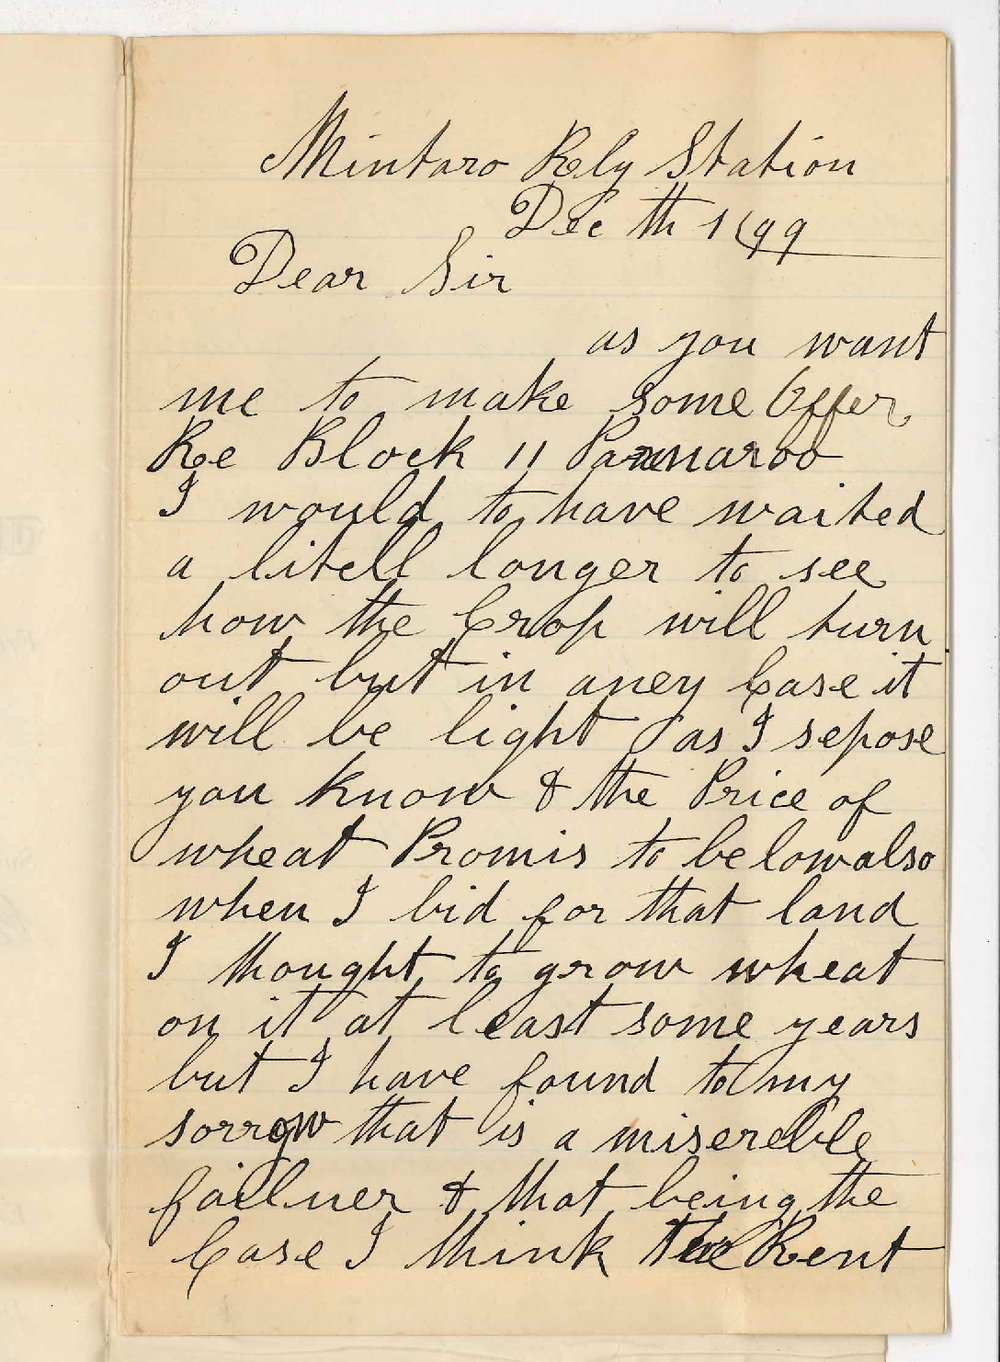 Mintaro Rly Station
Dec th 1899
Dear Sir
as you want
me to make some Offer
Re Block 11 Pannaroo
I would to have waited
a litell longer to see
how the Crop will turn
out but in aney Case it
will be light as I sepose
you know & the Price of
wheat Promis to be low also
when I bid for that land
I thought to grow wheat
on it at least some years
but I have found to my
sorrow that is a misereble
failuer & that being the
Case I think the Rent